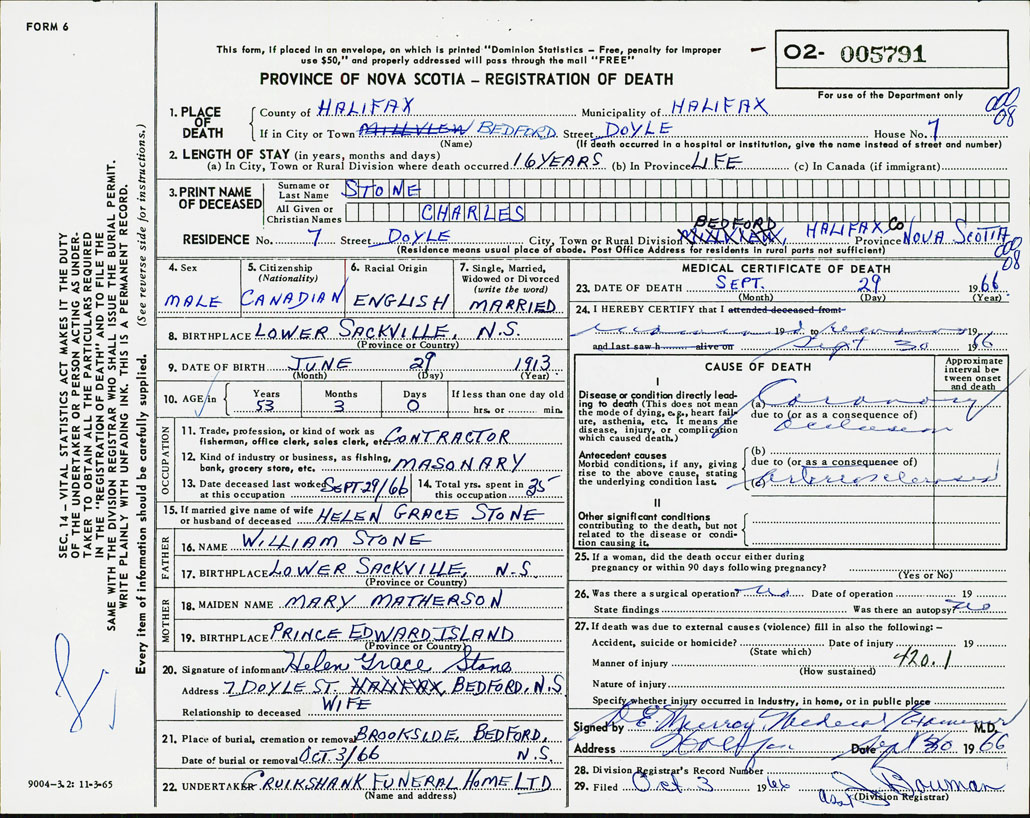 FORM 6
This form, if placed in an envelope, on which is printed "Dominion Statistics – Free, penalty for improper
use $50," and properly addressed will pass through the mail "FREE"
O2- 005791
PROVINCE OF NOVA SCOTIA – REGISTRATION OF DEATH
For use of the Department only
1. PLACE OF DEATH
County of HALIFAX Municipality of HALIFAX
000 08
If in City or Town MILLVIEW BEDFORD Street DOYLE House No. 7
(Name) (If death occurred in a hospital or institution, give the name instead of street and number)
2. LENGTH OF STAY (in years, months and days)
(a) In City, Town or Rural Division where death occurred 16 YEARS (b) In Province LIFE (c) In Canada (if immigrant)
3. PRINT NAME OF DECEASED
Surname or Last Name STONE
All Given or Christian Names CHARLES
RESIDENCE No. 7 Street DOYLE City, Town or Rural Division BEDFORD HALIFAX Co Province NOVA SCOTIA
(Residence means usual place of abode. Post Office Address for residents in rural parts not sufficient)
000 08
SEC. 14 – VITAL STATISTICS ACT MAKES IT THE DUTY
OF THE UNDERTAKER OR PERSON ACTING AS UNDER-
TAKER TO OBTAIN ALL THE PARTICULARS REQUIRED
IN THE "REGISTRATION OF DEATH" AND TO FILE THE
SAME WITH THE DIVISION REGISTRAR WHO SHALL ISSUE THE BURIAL PERMIT.
WRITE PLAINLY WITH UNFADING INK. THIS IS A PERMANENT RECORD.
Every item of information should be carefully supplied. (See reverse side for instructions.)
4. Sex MALE
5. Citizenship (Nationality) CANADIAN
6. Racial Origin ENGLISH
7. Single, Married, Widowed or Divorced (write the word) MARRIED
8. BIRTHPLACE LOWER SACKVILLE, N.S.
(Province or Country)
9. DATE OF BIRTH JUNE 29 1913
(Month) (Day) (Year)
10. AGE in Years 53 Months 3 Days 0 If less than one day old hrs. or min.
OCCUPATION
11. Trade, profession, or kind of work as
fisherman, office clerk, sales clerk, etc. CONTRACTOR
12. Kind of industry or business, as fishing,
bank, grocery store, etc. MASONARY
13. Date deceased last worked at this occupation SEPT 29/66
14. Total yrs. spent in this occupation 35
15. If married give name of wife
or husband of deceased HELEN GRACE STONE
FATHER
16. NAME WILLIAM STONE
17. BIRTHPLACE LOWER SACKVILLE, N.S.
(Province or Country)
MOTHER
18. MAIDEN NAME MARY MATHERSON
19. BIRTHPLACE PRINCE EDWARD ISLAND
(Province or Country)
20. Signature of informant Helen Grace Stone
Address 7 DOYLE ST. HALIFAX, BEDFORD, N.S.
Relationship to deceased WIFE
21. Place of burial, cremation or removal BROOKSIDE BEDFORD,
Date of burial or removal OCT. 3/66 N.S.
22. UNDERTAKER CRUIKSHANK FUNERAL HOME LTD
(Name and address)
9004-3.2: 11-3-65
MEDICAL CERTIFICATE OF DEATH
23. DATE OF DEATH SEPT. 29 1966
(Month) (Day) (Year)
24. I HEREBY CERTIFY that I attended deceased from
19 to 19
and last saw h alive on Sept 30 1966
CAUSE OF DEATH
Approximate interval between onset and death
I
Disease or condition directly lead-
ing to death (This does not mean
the mode of dying, e.g., heart fail-
ure, asthenia, etc. It means the
disease, injury, or complication
which caused death.)
(a) Coronary
due to (or as a consequence of)
occlusion
Antecedent causes
Morbid conditions, if any, giving
rise to the above cause, stating
the underlying condition last.
(b)
due to (or as a consequence of)
(c) Arteriosclerosis
II
Other significant conditions
contributing to the death, but not
related to the disease or condi-
tion causing it.
25. If a woman, did the death occur either during
pregnancy or within 90 days following pregnancy?
(Yes or No)
26. Was there a surgical operation? no Date of operation 19
State findings Was there an autopsy? no
27. If death was due to external causes (violence) fill in also the following:–
Accident, suicide or homicide? Date of injury 19
(State which)
Manner of injury 420.1
(How sustained)
Nature of injury
Specify whether injury occurred in industry, in home, or in public place
Signed by D E Murray Medical Examiner M.D.
Address Halifax Date Sept 30 1966
28. Division Registrar's Record Number
29. Filed Oct 3 1966 Asst J Bowman
(Division Registrar)